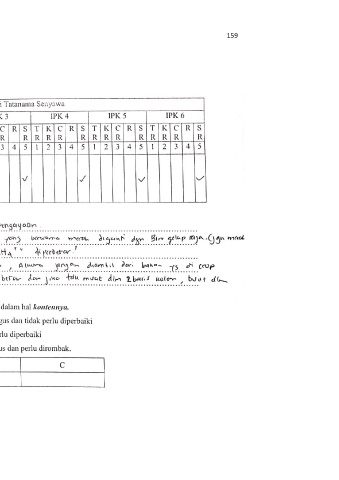 159
i Tatanama Senyawa
K 3 IPK 4 IPK 5 IPK 6
C R S T K C R S T K C R S T K C R S
R R R R R R R R R R R R R R
3 4 5 1 2 3 4 5 1 2 3 4 5 1 2 3 4 5
✓ ✓ ✓ ✓
pengayaan
yang berwarna merah diganti dgn Biru gelap saja. (jgn merah
diperbesar
, Alumu jangan diambil dari bahan yg di
besar dan jika tdk muat dlm 2 baris kolom, buat dlm
dalam hal kontennya.
gus dan tidak perlu diperbaiki
rlu diperbaiki
us dan perlu dirombak.
C